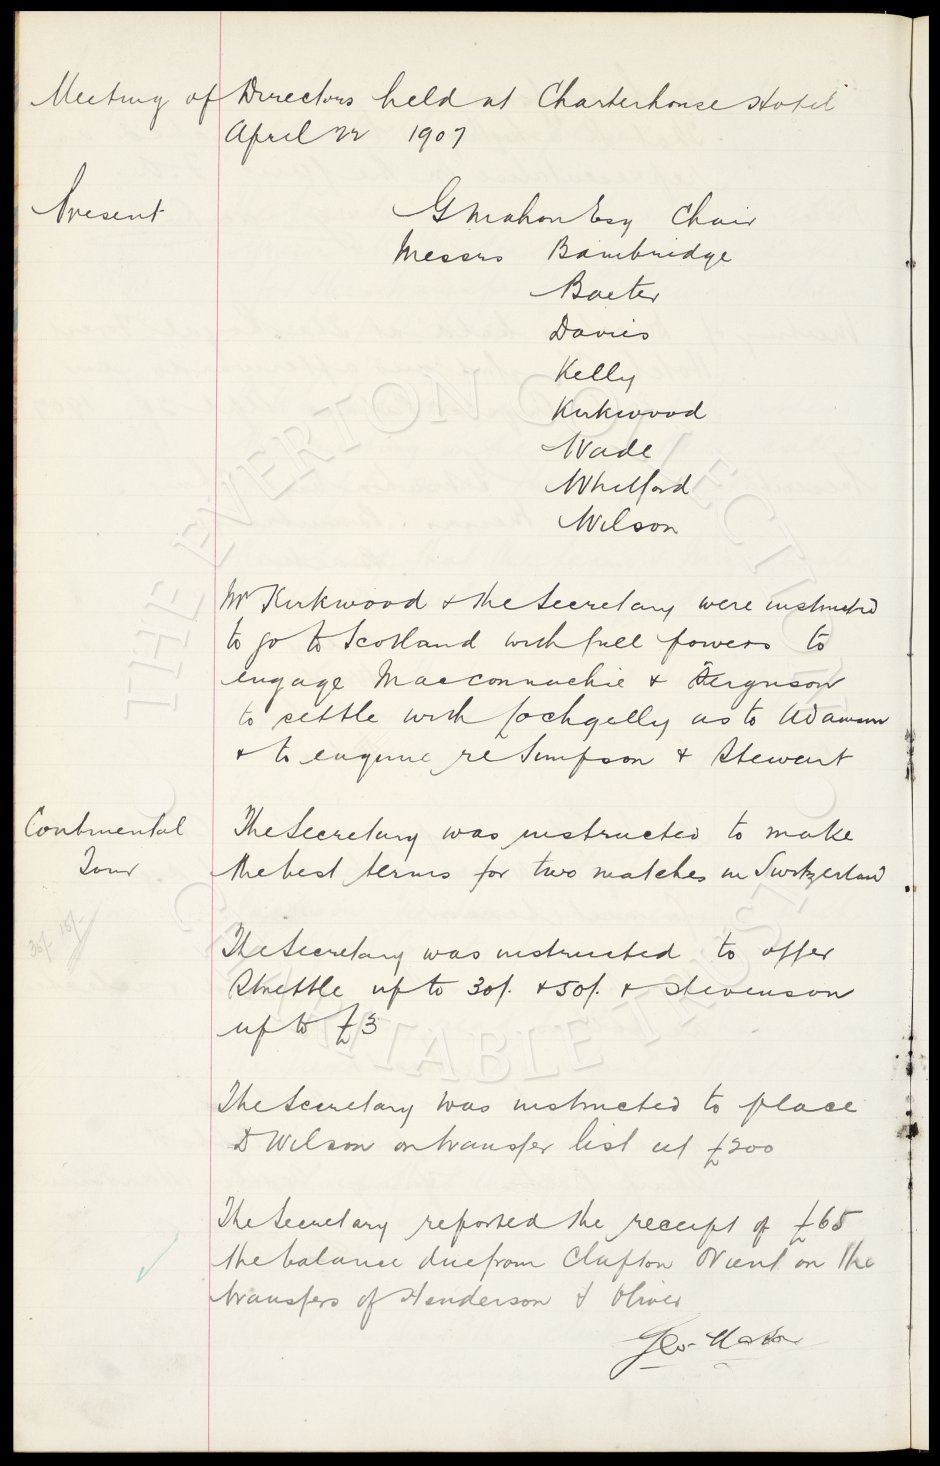 Meeting of Directors held at Charterhouse Hotel
April 22 1907
Present
G Mahon Esq Chair
Messrs Bainbridge
Baxter
Davies
Kelly
Kirkwood
Wade
Whitford
Wilson
Mr Kirkwood & the Secretary were instructed
to go to Scotland with full powers to
engage Macconnachie & Ferguson
to settle with Lochgelly as to Adamson
& to enquire re Simpson & Stewart
Continental
Tour
The Secretary was instructed to make
the best terms for two matches in Switzerland
30/- 15/-
The Secretary was instructed to offer
Strettle up to 30/. & 50/. & Stevenson
up to £3
The Secretary was instructed to place
D Wilson on transfer list at £200
The Secretary reported the receipt of £65
the balance due from Clapton Orient on the
transfers of Henderson & Oliver
Geo Mahon
THE EVERTON COLLECTION
CHARITABLE TRUST